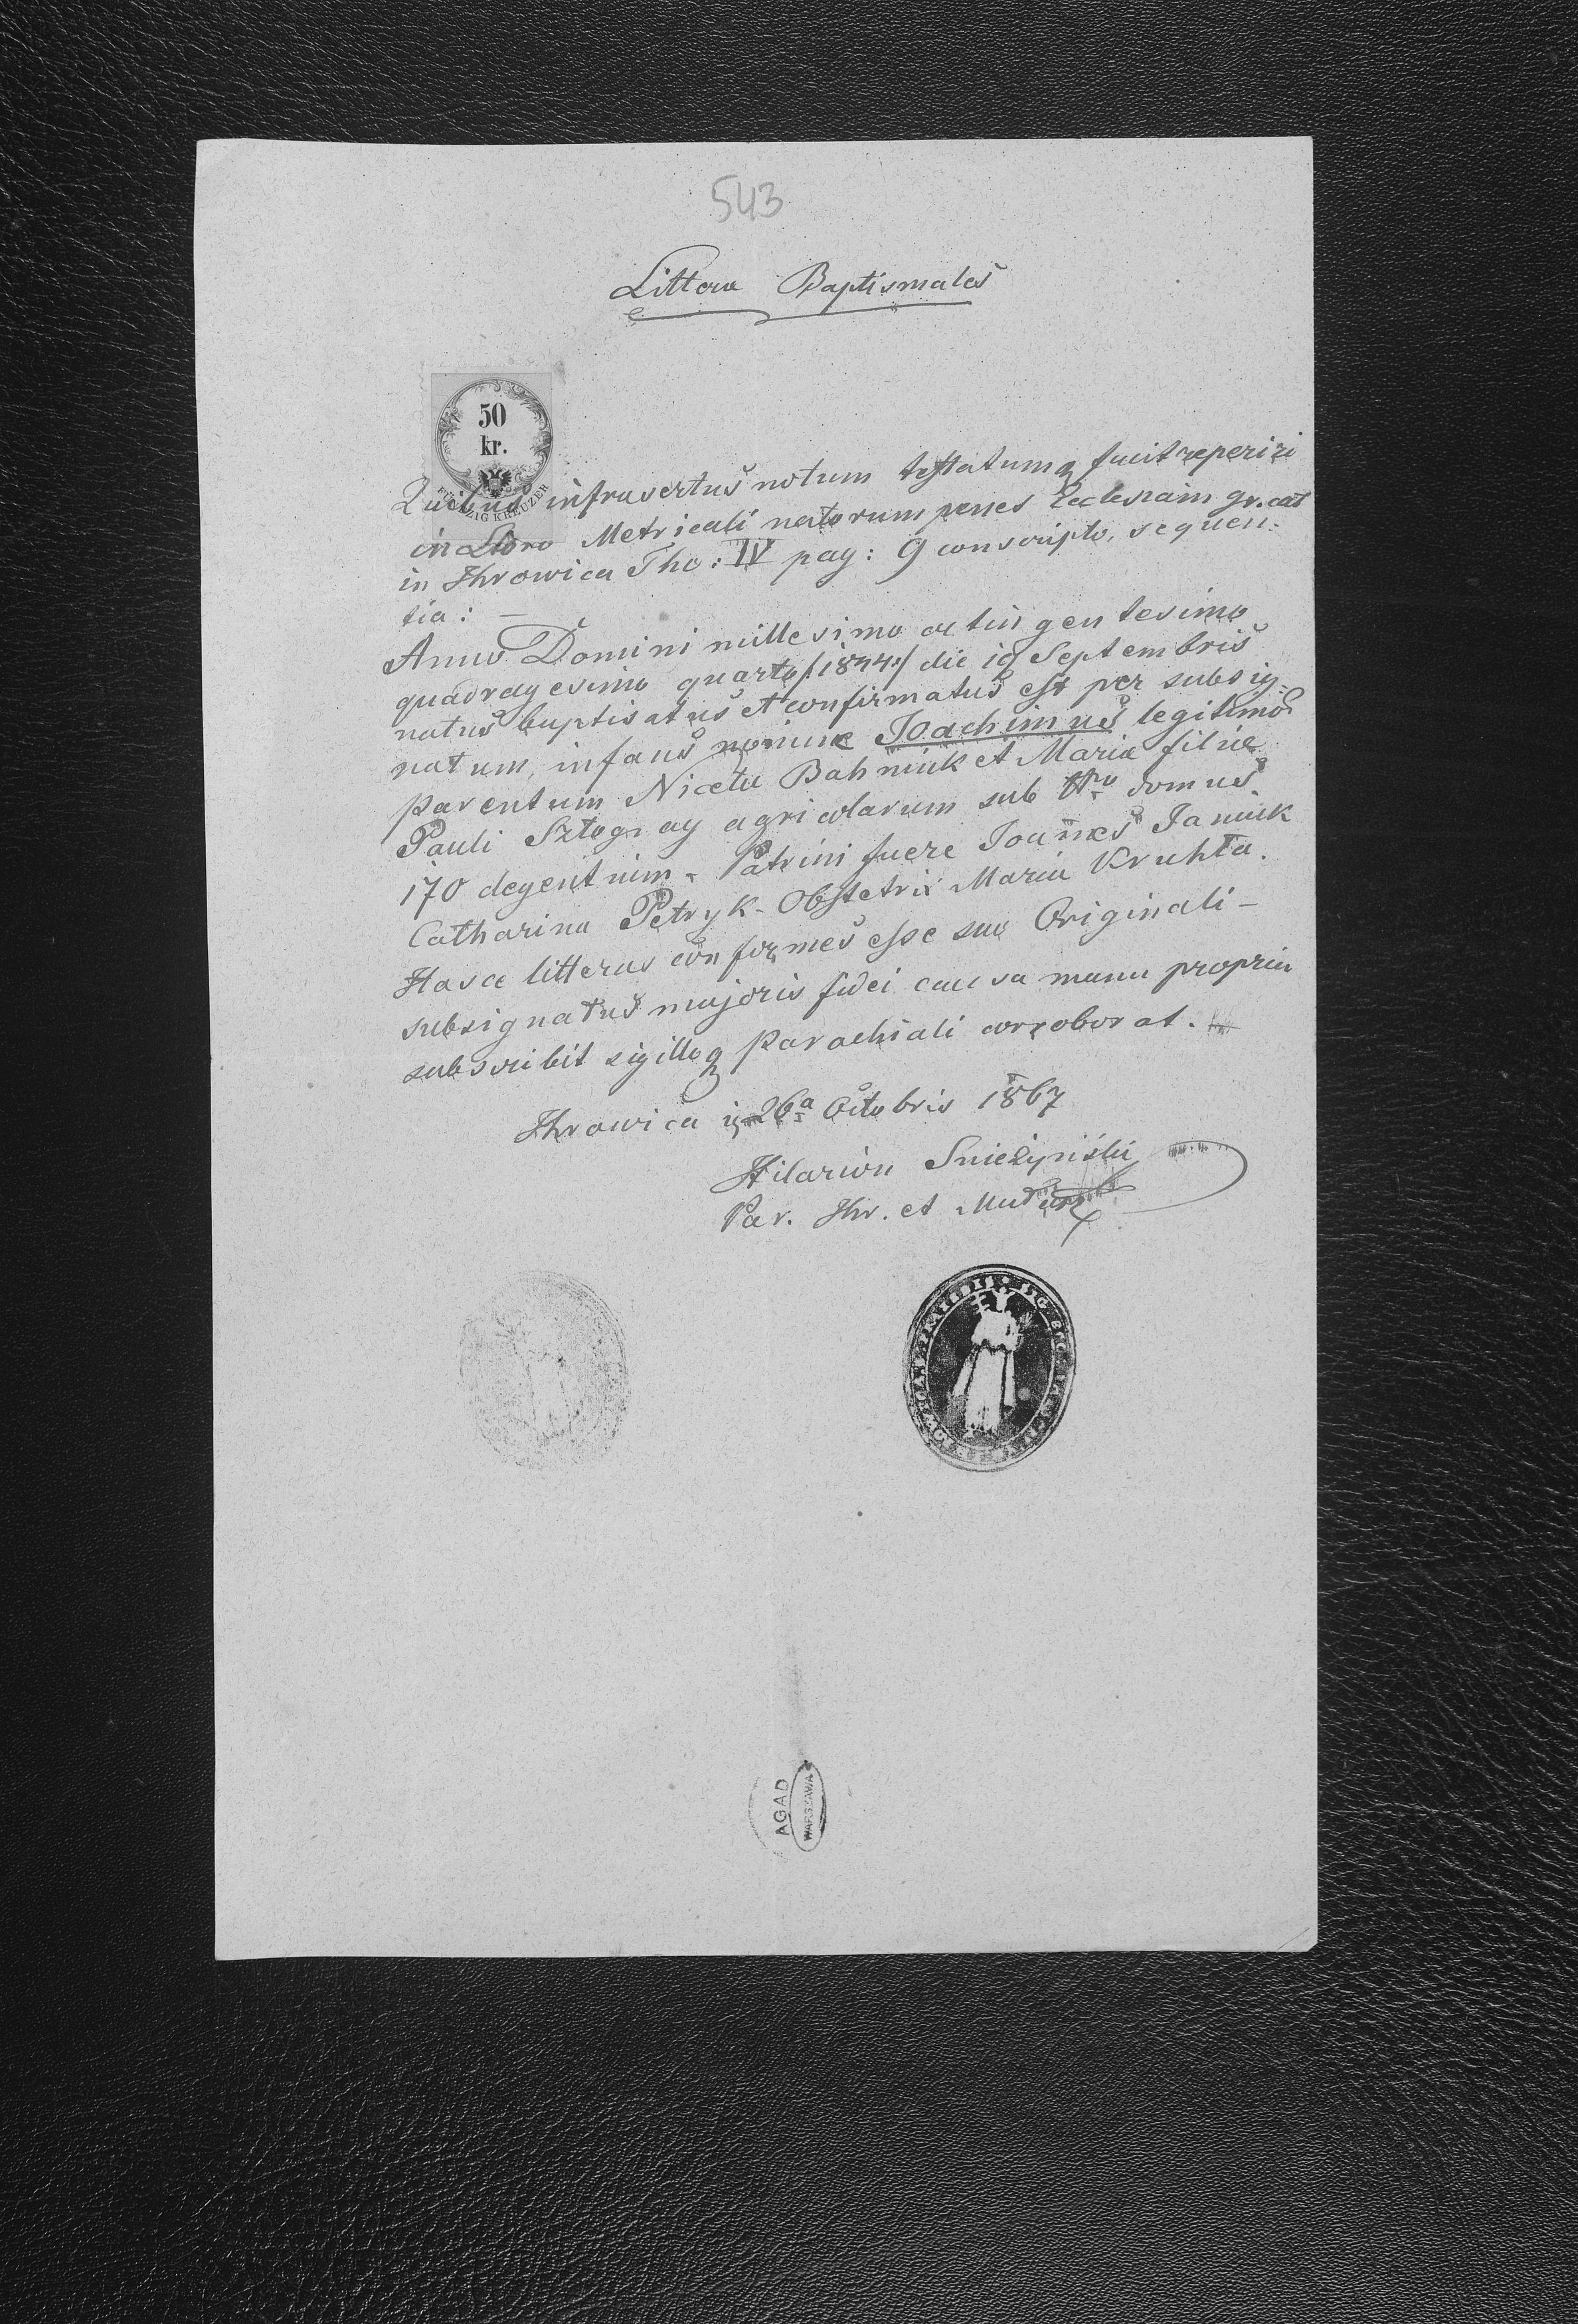 543
Littera Baptismales
50
kr.
FÜNFZIG KREUZER
Quibus infrasertus notum testatumq facit reperiri
in Libro Metricali natorum penes Ecclesiam gr. cat
in Ihrowica Tho: IV pag: 9 conscripto, sequen=
tia: —
Anno Domini millesimo octingentesimo
quadragesimo quarto /:1844:/ die 19 Septembris
natus baptisatus et confirmatus est per subsig=
natum, infans nomine Joachimus legitimor
parentum Niceta Bahniuk et Maria filia
Pauli Sztogray agricolarum sub Nro domus
170 degentium - Patrini fuere Joannes Janiuk
Catharina Petryk - Obstetrix Maria Kruhta.
Hasce litteras conformes esse suo Originali -
subsignatus majoris fidei causa manu propria
subscribit sigilloq parochiali corroborat.
Ihrowica 26a Octobris 1867
Hilarion Snieżyński
Par. Ihr. et
AGAD
WARSZAWA